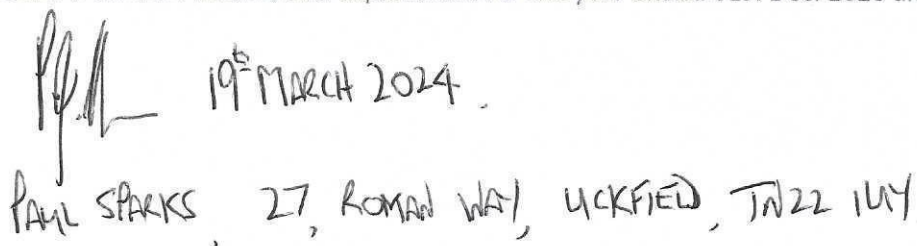 19th MARCH 2024.
PAUL SPARKS, 27, ROMAN WAY, UCKFIELD, TN22 1UY